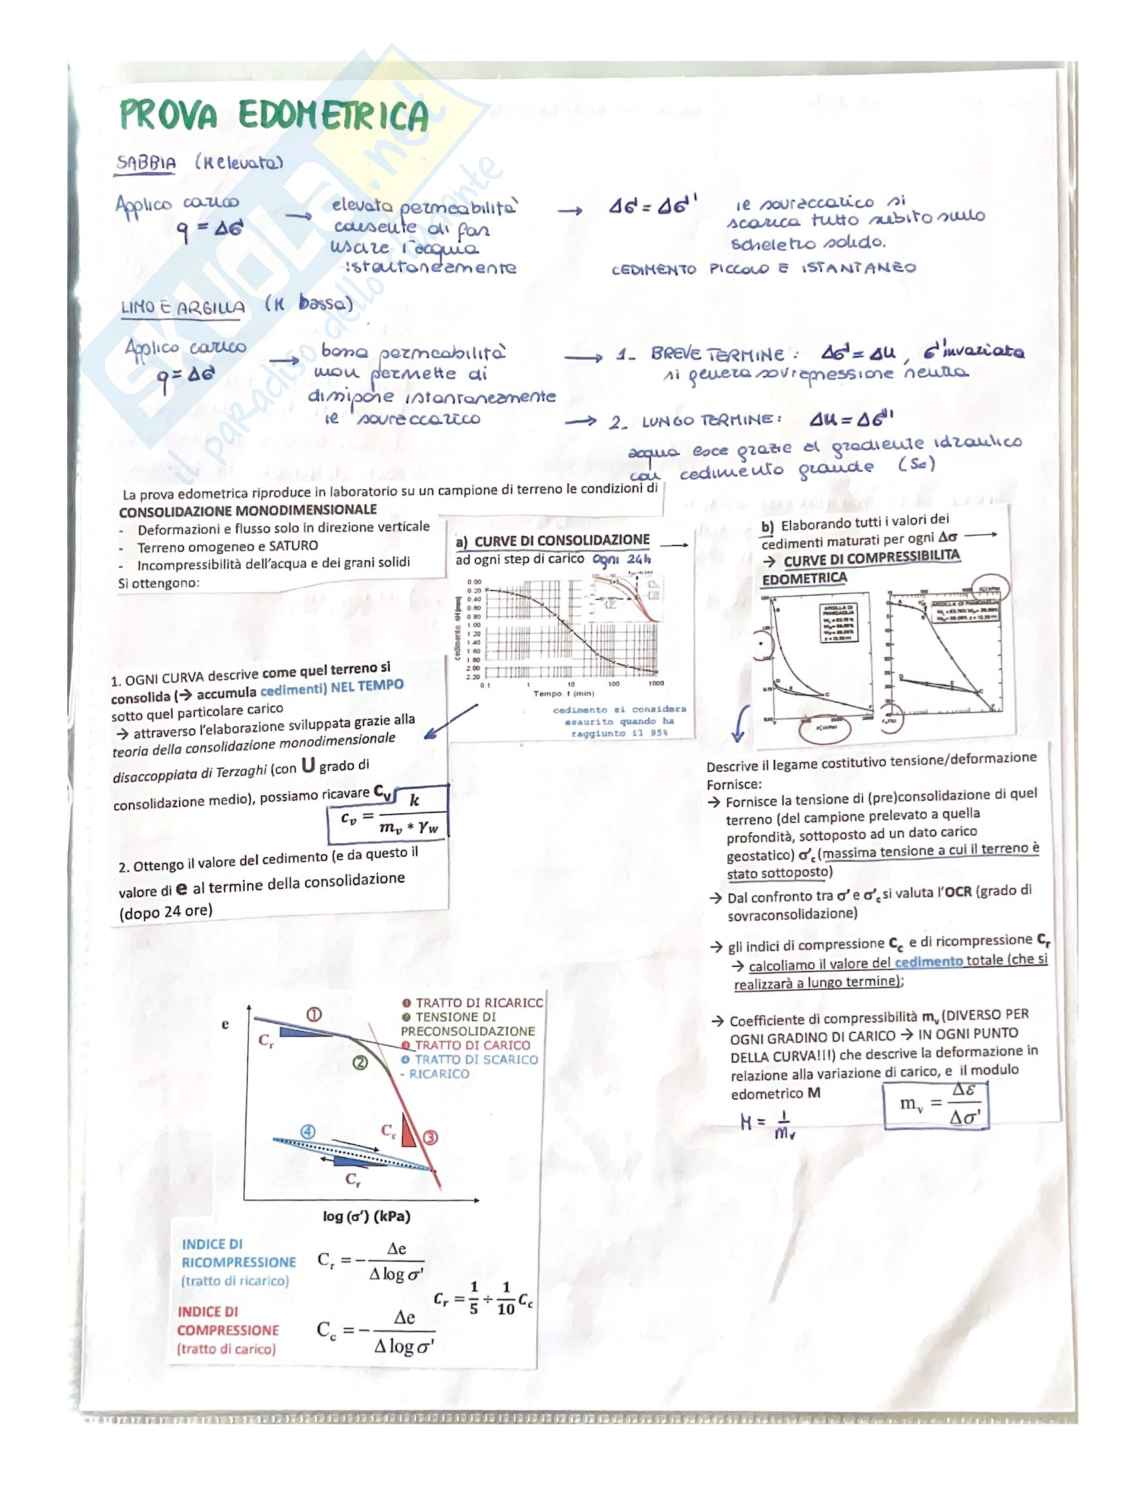 PROVA EDOMETRICA
SABBIA (K elevata)
Applico carico
q = Δσ
→ elevata permeabilità
consente di far
uscire l'acqua
istantaneamente
→ Δσ = Δσ'
ie sovraccarico si
scarica tutto subito sullo
scheletro solido.
CEDIMENTO PICCOLO E ISTANTANEO
LIMO E ARGILLA (K bassa)
Applico carico
q = Δσ
→ bassa permeabilità
non permette di
dissipare istantaneamente
ie sovraccarico
→ 1- BREVE TERMINE: Δσ = Δu, σ' invariata
si genera sovrapressione neutra
→ 2- LUNGO TERMINE: Δu = Δσ'
acqua esce grazie al gradiente idraulico
con cedimento grande (Sc)
SKUOLA.net
il paradiso dello studente
La prova edometrica riproduce in laboratorio su un campione di terreno le condizioni di
CONSOLIDAZIONE MONODIMENSIONALE
- Deformazioni e flusso solo in direzione verticale
- Terreno omogeneo e SATURO
- Incompressibilità dell'acqua e dei grani solidi
Si ottengono:
a) CURVE DI CONSOLIDAZIONE →
ad ogni step di carico ogni 24h
0.00
0.20
0.40
0.60
0.80
1.00
1.20
1.40
1.60
1.80
2.00
2.20
cedimento δH(mm)
0.1 1 10 100 1000
Tempo t (min)
cedimento si considera
esaurito quando ha
raggiunto il 95%
b) Elaborando tutti i valori dei
cedimenti maturati per ogni Δσ →
→ CURVE DI COMPRESSIBILITA
EDOMETRICA
ARGILLA DI
1. OGNI CURVA descrive come quel terreno si
consolida (→ accumula cedimenti) NEL TEMPO
sotto quel particolare carico
→ attraverso l'elaborazione sviluppata grazie alla
teoria della consolidazione monodimensionale
disaccoppiata di Terzaghi (con U grado di
consolidazione medio), possiamo ricavare Cv
cv = k / (mv * γw)
2. Ottengo il valore del cedimento (e da questo il
valore di e al termine della consolidazione
(dopo 24 ore)
Descrive il legame costitutivo tensione/deformazione
Fornisce:
→ Fornisce la tensione di (pre)consolidazione di quel
terreno (del campione prelevato a quella
profondità, sottoposto ad un dato carico
geostatico) σ'c (massima tensione a cui il terreno è
stato sottoposto)
→ Dal confronto tra σ' e σ'c si valuta l'OCR (grado di
sovraconsolidazione)
→ gli indici di compressione Cc e di ricompressione Cr
→ calcoliamo il valore del cedimento totale (che si
realizzarà a lungo termine);
→ Coefficiente di compressibilità mv (DIVERSO PER
OGNI GRADINO DI CARICO → IN OGNI PUNTO
DELLA CURVA!!!) che descrive la deformazione in
relazione alla variazione di carico, e il modulo
edometrico M
M = 1/mv
mv = Δε/Δσ'
e
① Cr
②
Cc ③
④
Cr
❶ TRATTO DI RICARICC
❷ TENSIONE DI
PRECONSOLIDAZIONE
❸ TRATTO DI CARICO
❹ TRATTO DI SCARICO
- RICARICO
log (σ') (kPa)
INDICE DI
RICOMPRESSIONE
(tratto di ricarico)
Cr = - Δe / Δ log σ'
Cr = 1/5 ÷ 1/10 Cc
INDICE DI
COMPRESSIONE
(tratto di carico)
Cc = - Δe / Δ log σ'